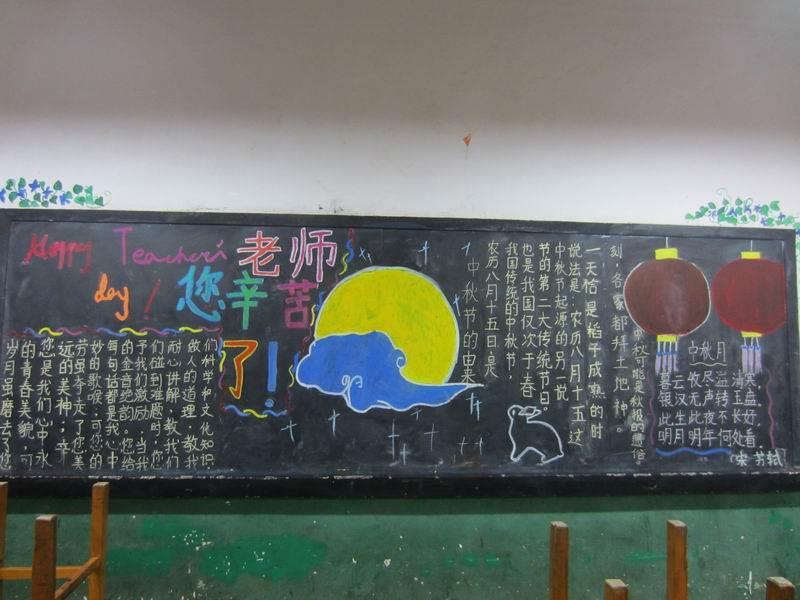 Happy Teacher's
day!
老师
您辛苦
了!
岁月虽磨去了您
的青春美貌,可
您是我们心中永
远的美神;辛
劳虽夺走了您美
妙的歌喉;可您的
每句话都是我心中
的金音绝韵,您给
予我们激励;当我
们碰到难题时,您
耐心讲解,教我们
做人的道理,教我
们科学和文化知识
中秋节的由来
农历八月十五日,是
我国传统的中秋节,
也是我国仅次于春
节的第二大传统节日。
中秋节起源的另一说
说法是:农历八月十五这
一天恰是稻子成熟的时
刻,各家都拜土地神。
秋可能是秋报的遗俗
中秋月
暮云收尽溢清寒,
银汉无声转玉盘。
此生此夜不长好,
明月明年何处看。
(宋·苏轼)